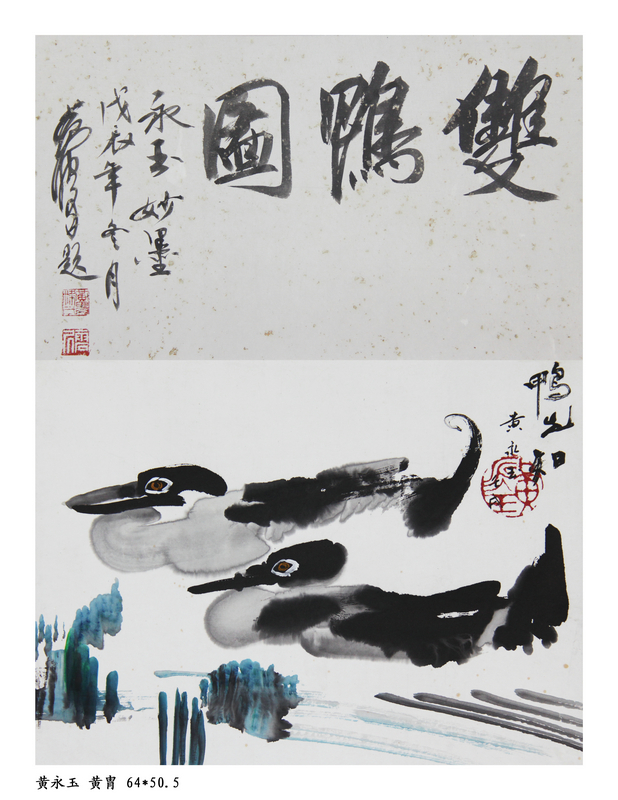 雙鴨圖
永玉妙墨
戊辰年冬月
黄胄題
鴨先知
黄永玉
黄永玉 黄胄 64*50.5